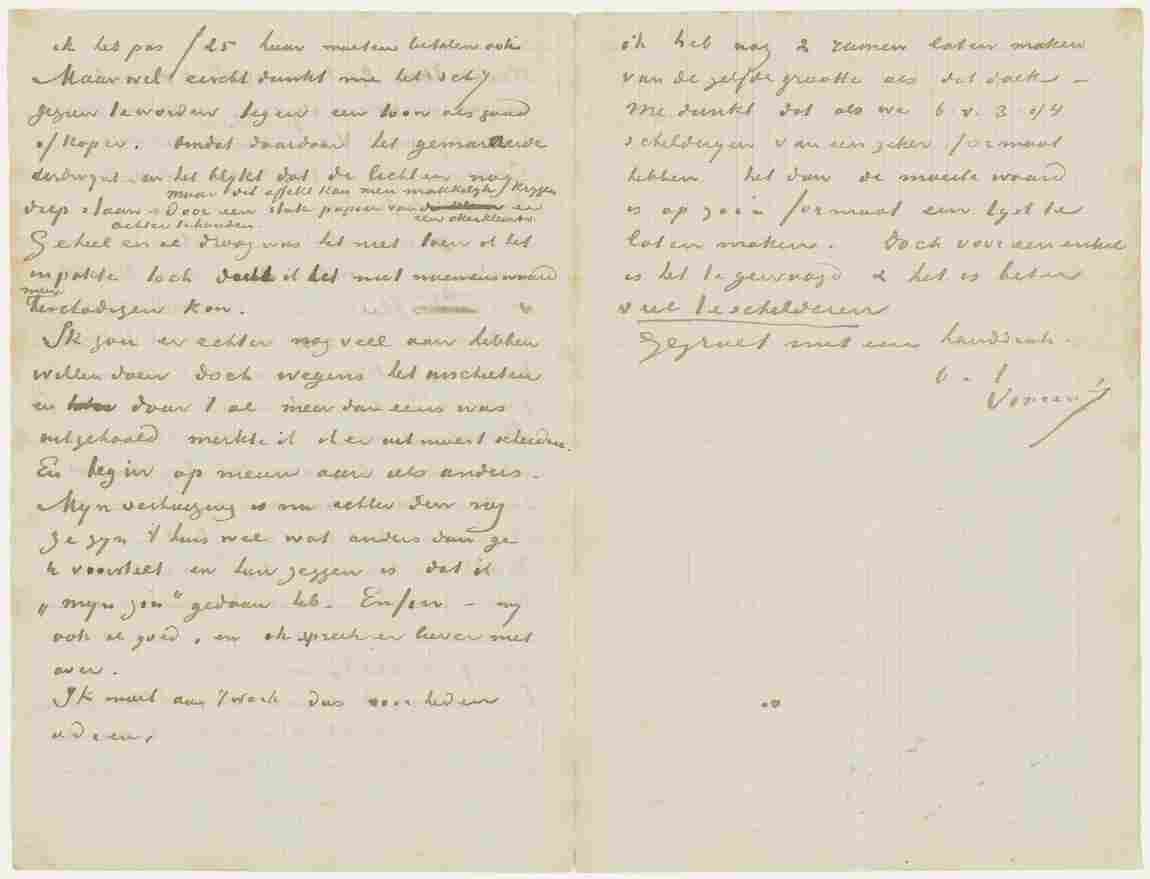 ik het pas f 25 huur moeten betalen ook
Maar wel eischt dunkt me het schij
gezien te worden tegen een toon als goud
of koper. Omdat daardoor het gemarmerde
verdwynt en het blykt dat de lichten nog
maar dit effekt kan men makkelyk krygen
diep staan – door een stuk papier van er
een okerkleur
achter te houden
Geheel en al droog was het niet toen ik het
inpakte toch dacht ik het niet noemenswaard
meer
beschadigen kon.
Ik zou er echter nog veel aan hebben
willen doen doch wegens het inschieten
en daar 't al meer dan eens was
uitgehaald merkte ik ik er uit moest scheiden.
En begin op nieuw aan iets anders –
Myn verhuizing is nu achter den rug
Ze zyn 't huis wel wat anders dan ge
U voorstelt en hun zeggen is dat ik
„myn zin” gedaan heb. Enfin – my
ook al goed, en ik spreek er liever niet
over.
Ik moet aan 't werk dus voor heden
adieu,
ik heb nog 2 ramen laten maken
van dezelfde grootte als dat doek –
Me dunkt dat als we b.v. 3 of 4
schilderyen van een zeker formaat
hebben het dan de moeite waard
is op zoo'n formaat een lyst te
laten maken. Doch voor een enkel
is het te gewaagd & het is beter
veel te schilderen
Gegroet met een handdruk.
b. à t.
Vincent